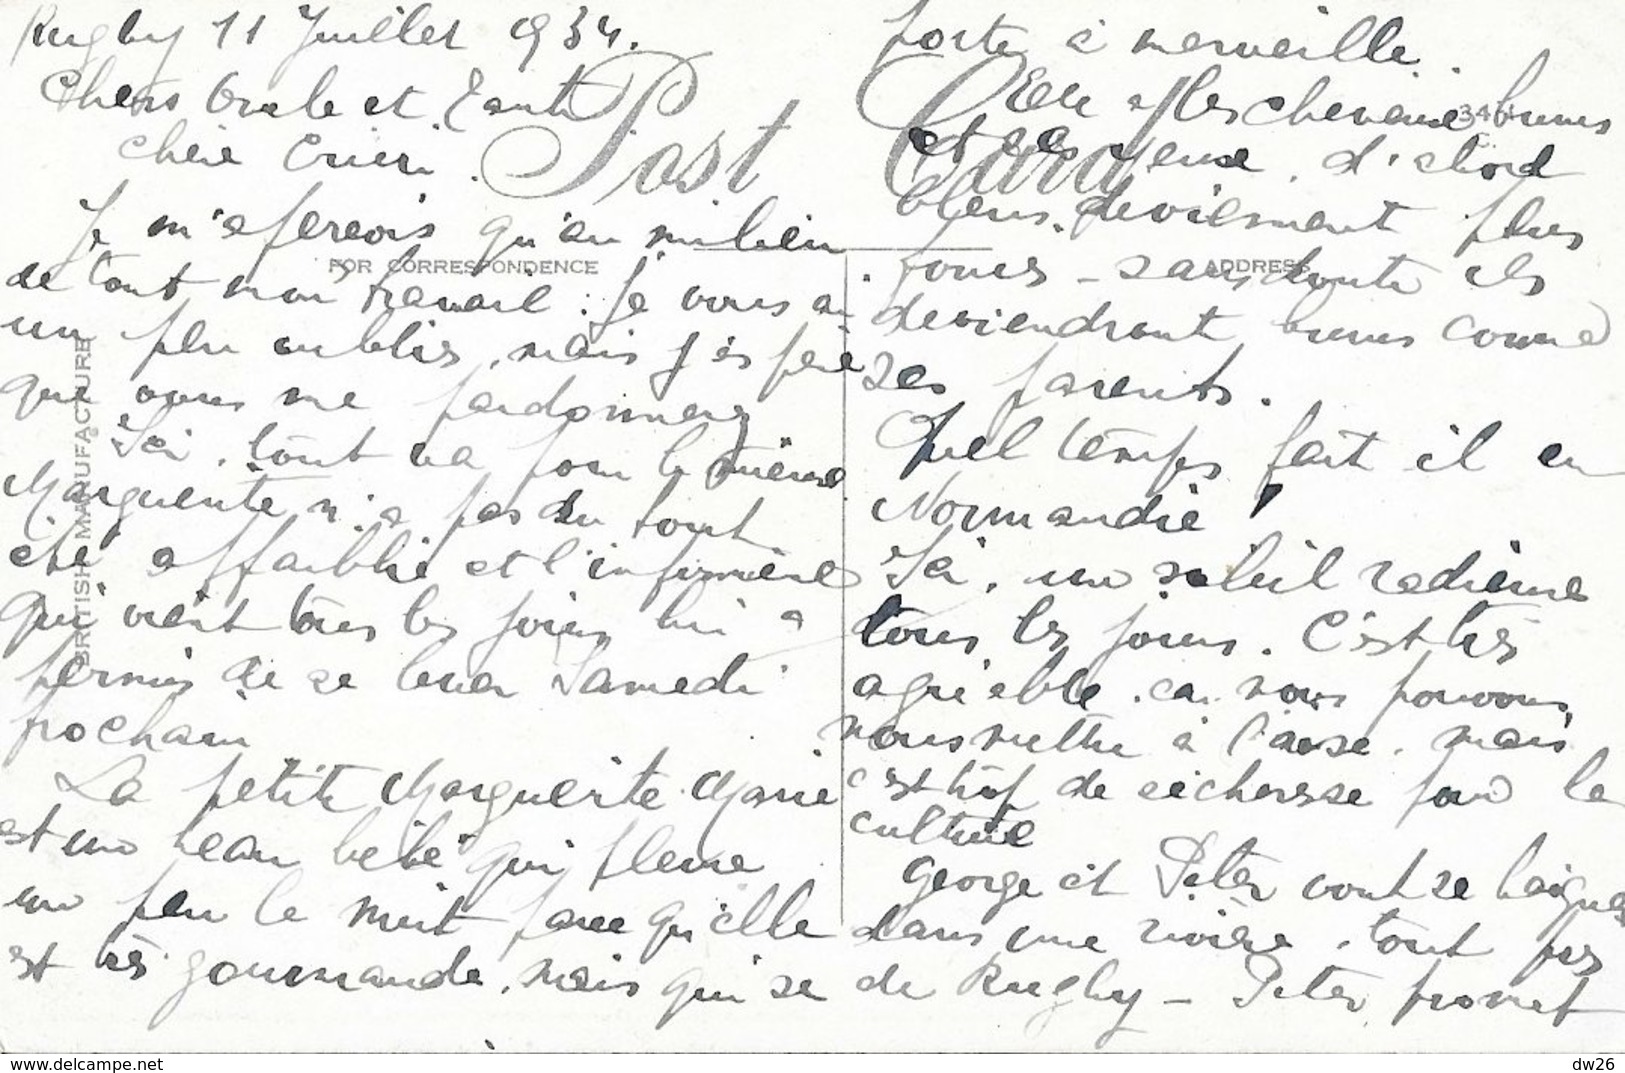 Rugby 11 Juillet 1934.
Chers Oncle et Tante
chère
Je m'aperçois qu'au milieu
de tout mon travail : je vous ai
un peu oubliés, mais j'espère
que vous me pardonnerez
Ici, tout va pour le mieux
Marguerite n'a pas du tout
été affaiblie et l'infirmière
qui vient tous les jours lui a
permis de se lever Samedi
prochain
La petite Marguerite Marie
est un beau bébé qui pleure
un peu la nuit parce qu'elle
est très gourmande, mais qui se
porte à merveille.
Elle a les cheveux bruns
et ses yeux, d'abord
bleus, deviennent plus
foncés - sans doute ils
deviendront bruns comme
ses parents.
Quel temps fait il en
Normandie ?
Ici, un soleil radieux
tous les jours. C'est très
agréable car nous pouvons
nous mettre à l'aise, mais
c'est trop de sécheresse pour la
culture
George et Peter vont se baigner
dans une rivière, tout près
de Rugby - Peter promet
Post Card
FOR CORRESPONDENCE
ADDRESS
BRITISH MANUFACTURE
© delcampe.net
dw26